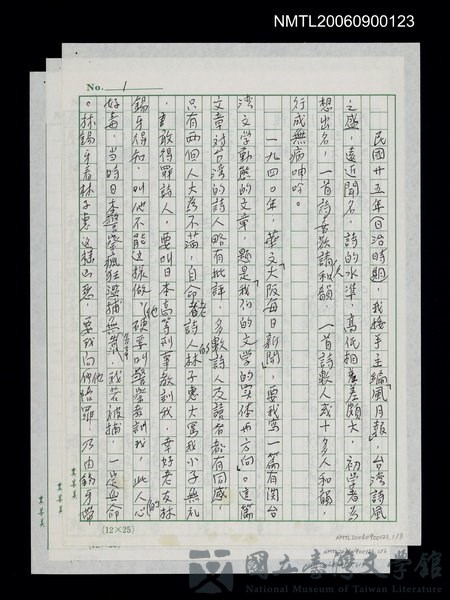 NMTL20060900123
No. 1
民國廿五年(日治時期),我接手主編風月報,台灣詩風
之盛,遠近聞名,詩人的水準,高低相差頗大,初學者為
想出名,一首詩要敬請和韻,一首詩數人或十多人和韻,
行成無病呻吟。
一九四○年,華文「大阪每日新聞」,要我寫一篇有関台
湾文學動態的文章,題是「我們的文學的実体与方向」。這篇
文章對台湾的詩人略有批評,多數詩人及讀者都有同感,
只有兩個人大為不滿,自命老詩人的林子惠大罵我小子無礼
,膽敢得罪詩人,要叫日本高等刑事教訓我,幸好老友林
錫牙得知,叫他不能這樣做,他硬要叫警察教訓我,此人心的
好毒,當時日本警察瘋狂濫捕無辜,我若被捕,一定無命
。林錫牙看林子惠這樣凶惡,要我向他陪罪,乃由錫牙帶
(12×25)
NMTL20060900123 1/3
國立臺灣文學館
National Museum of Taiwan Literature